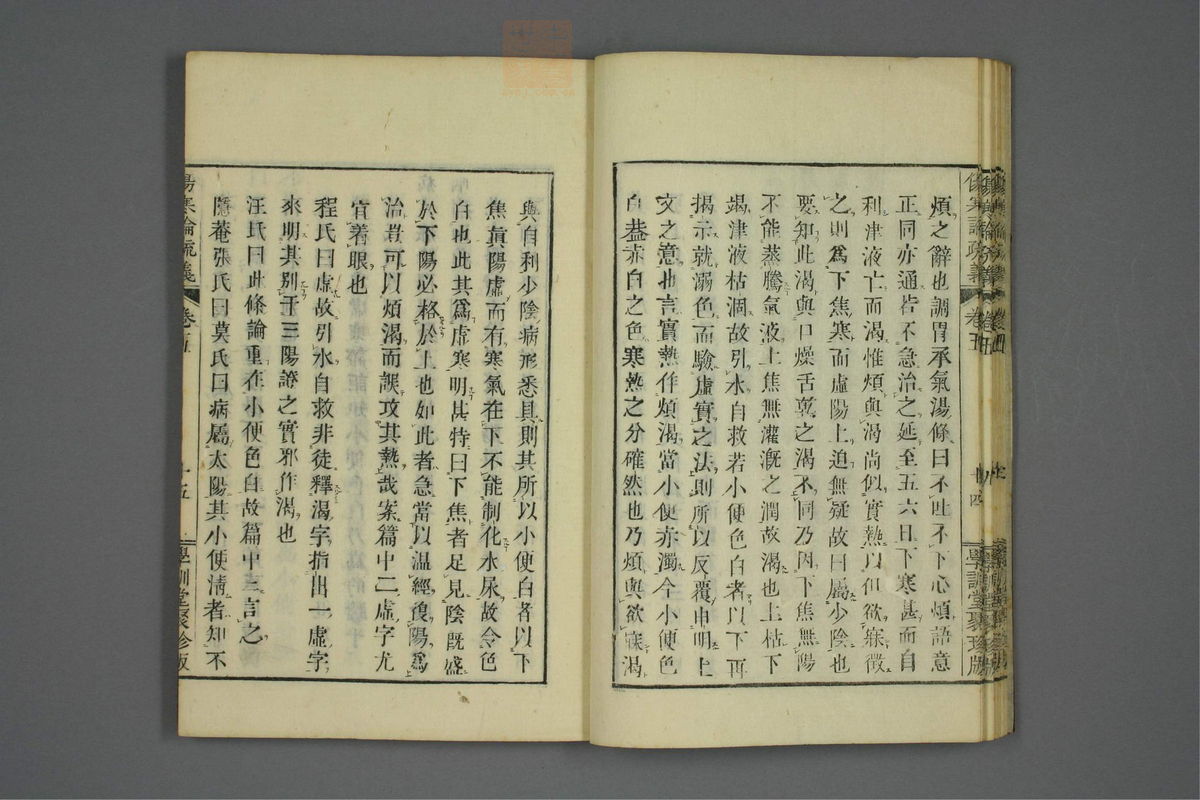 煩之辭也調胃承氣湯條曰不吐不下心煩語意
正同亦通若不急治之延至五六日下寒甚而自
利津液亡而渴惟煩與渴尚似實熱以但欲寐徵
之則爲下焦寒而虛陽上迫無疑故曰屬少陰也
要知此渴與口燥舌乾之渴不同乃因下焦無陽
不能蒸騰氣液上焦無灌漑之潤故渴也上枯下
竭津液枯涸故引水自救若小便色白者以下再
揭示就溺色而驗虛實之法則所以反覆申明上
文之意也言實熱作煩渴當小便赤濁今小便色
白葢赤白之色寒熱之分確然也乃煩與欲寐渴
傷寒論疏義
卷五
十四
學訓堂聚珍版
與自利少陰病形悉具則其所以小便白者以下
焦眞陽虛而有寒氣在下不能制化水尿故令色
白也此其爲虛寒明甚特曰下焦者足見陰旣盛
於下陽必格於上也如此者急當以温經復陽爲
治豈可以煩渴而誤攻其熱哉案篇中二虛字尤
宜着眼也
程氏曰虛故引水自救非徒釋渴字指出一虛字
來明其別于三陽證之實邪作渴也
汪氏曰此條論重在小便色白故篇中三言之
隱菴張氏曰莫氏曰病屬太陽其小便淸者知不
傷寒論疏義
卷五
十五
學訓堂聚珍版